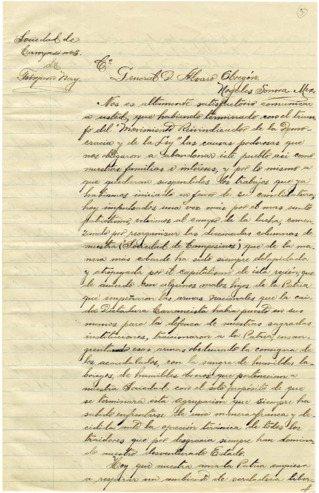 Sociedad de
Campesinos
de
C. General D. Alvaro Obregón
Nogales Sonora Mex.
Nos es altamente satisfactorio comunicar
a usted, que habiendo terminado con el triun
fo del "Movimiento Reivindicador de la Demo
cracia y de la Ley" las causas poderosas que
nos obligaron a abandonar este pueblo así como
nuestras familias e intereses, y por lo mismo a
que quedaran suspendidos los trabajos que ya
habíamos iniciado en favor de su candidatura,
hoy impulsados una vez más por el más santo
patriotismo, volvemos al campo de la lucha, comen
zando por reorganizar las diezmadas columnas de
nuestra (Sociedad de Campesinos) que de la ma
nera más cobarde ha sido siempre
y atropellada por el capitalismo de esta región, que
de acuerdo con algunos malos hijos de la Patria
que empuñaron las armas Nacionales que la caí
da Dictadura Carrancista había puesto en sus
manos para la defensa de nuestras sagradas
instituciones, traicionaron a la Patria
esas armas, obedeciendo la consigna de
los acaudalados, con la sangre de humildes la
briegos, de humildes que pertenecían a
nuestra Sociedad con el solo propósito de que
se terminara esta agrupación que siempre ha
sabido enfrentarse de una manera franca y de
cidida ante la opresión tiránica de todos los
traidores que por desgracia siempre han domina
do nuestro desventurado Estado.
Hoy que nuestra amada Patria empieza
a respirar un ambiente de verdadera liber